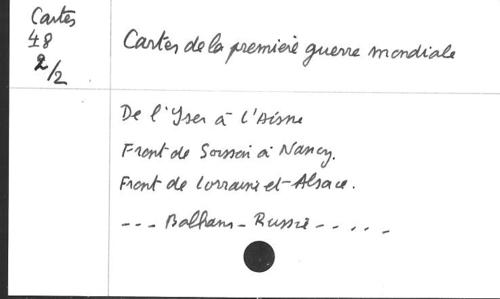 Cartes
48
2/2
Cartes de la première guerre mondiale
De l'Yser à l'Aisne
Front de Soissons à Nancy.
Front de Lorraine et-Alsace.
--- Balkans - Russie -----